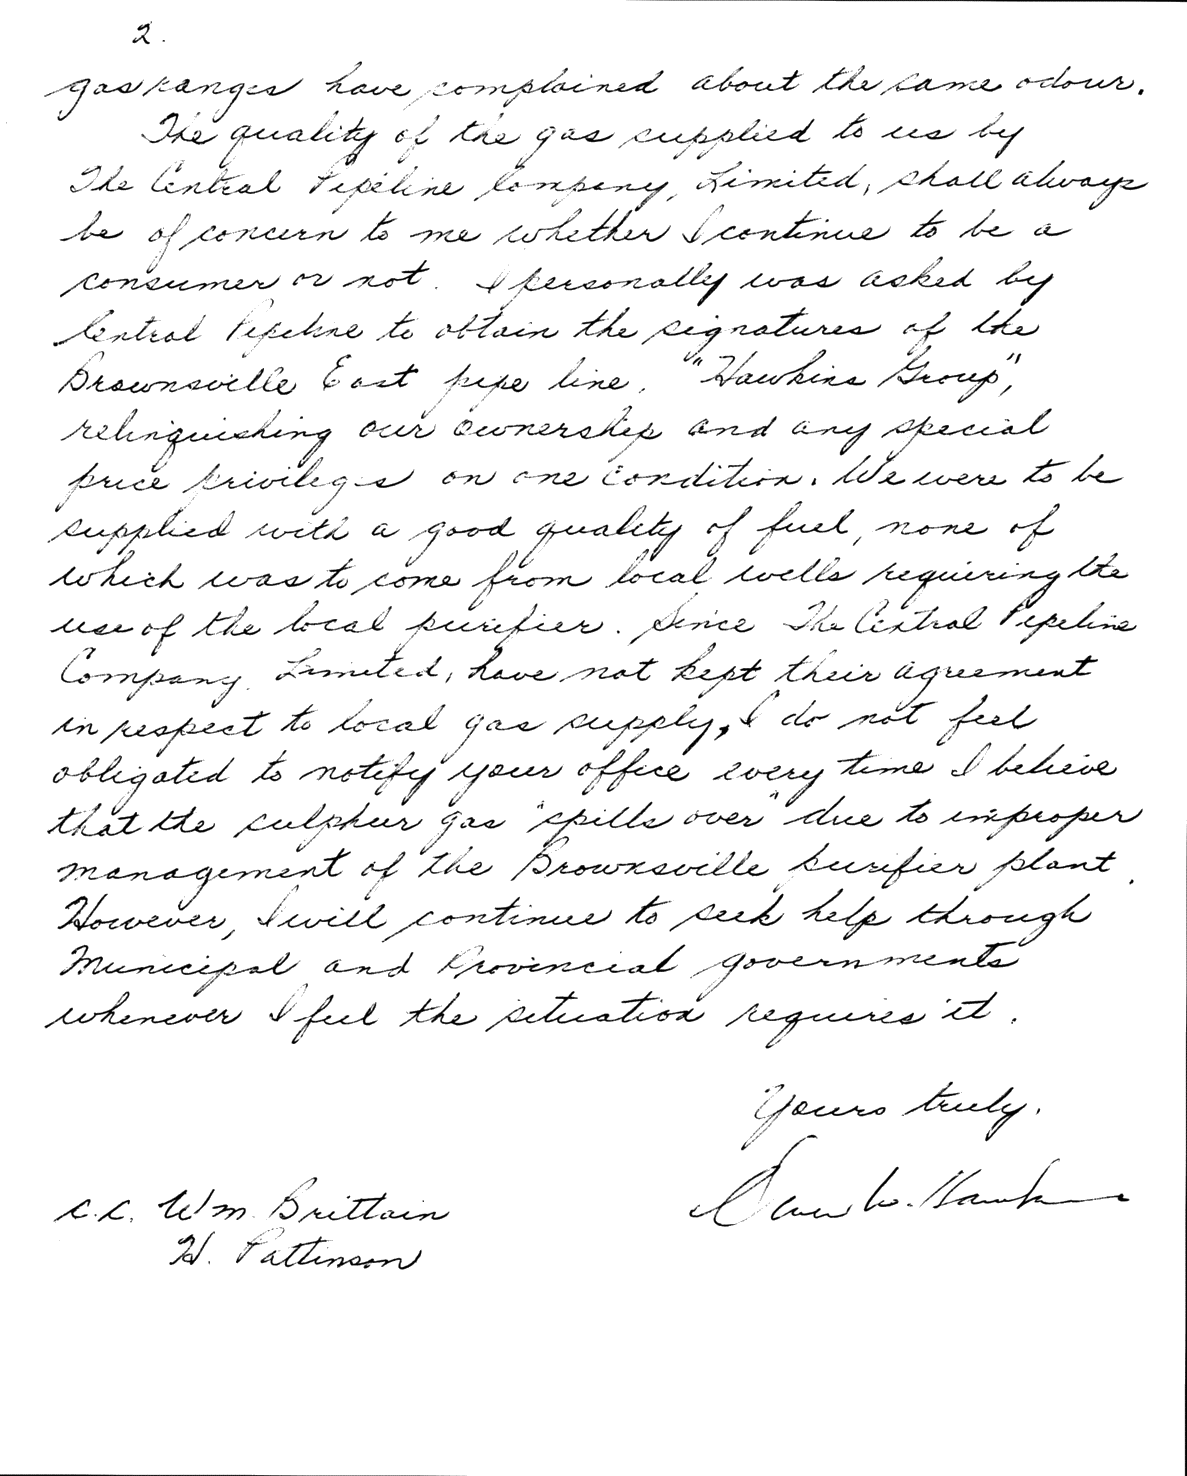 2.
gas ranges have complained about the same odour.
The quality of the gas supplied to us by
The Central Pipeline Company, Limited, shall always
be of concern to me whether I continue to be a
consumer or not. I personally was asked by
Central Pipeline to obtain the signatures of the
Brownsville East pipe line, "Hawkins Group",
relinquishing our ownership and any special
price privileges on one condition. We were to be
supplied with a good quality of fuel, none of
which was to come from local wells requiering the
use of the local purifier. Since The Central Pipeline
Company, Limited, have not kept their agreement
in respect to local gas supply, I do not feel
obligated to notify your office every time I believe
that the sulphur gas "spills over" due to improper
management of the Brownsville purifier plant.
However, I will continue to seek help through
Municipal and Provincial governments
whenever I feel the situation requires it.
Yours truly.
W. Hawkins
c.c. Wm. Brittain
H. Pattinson